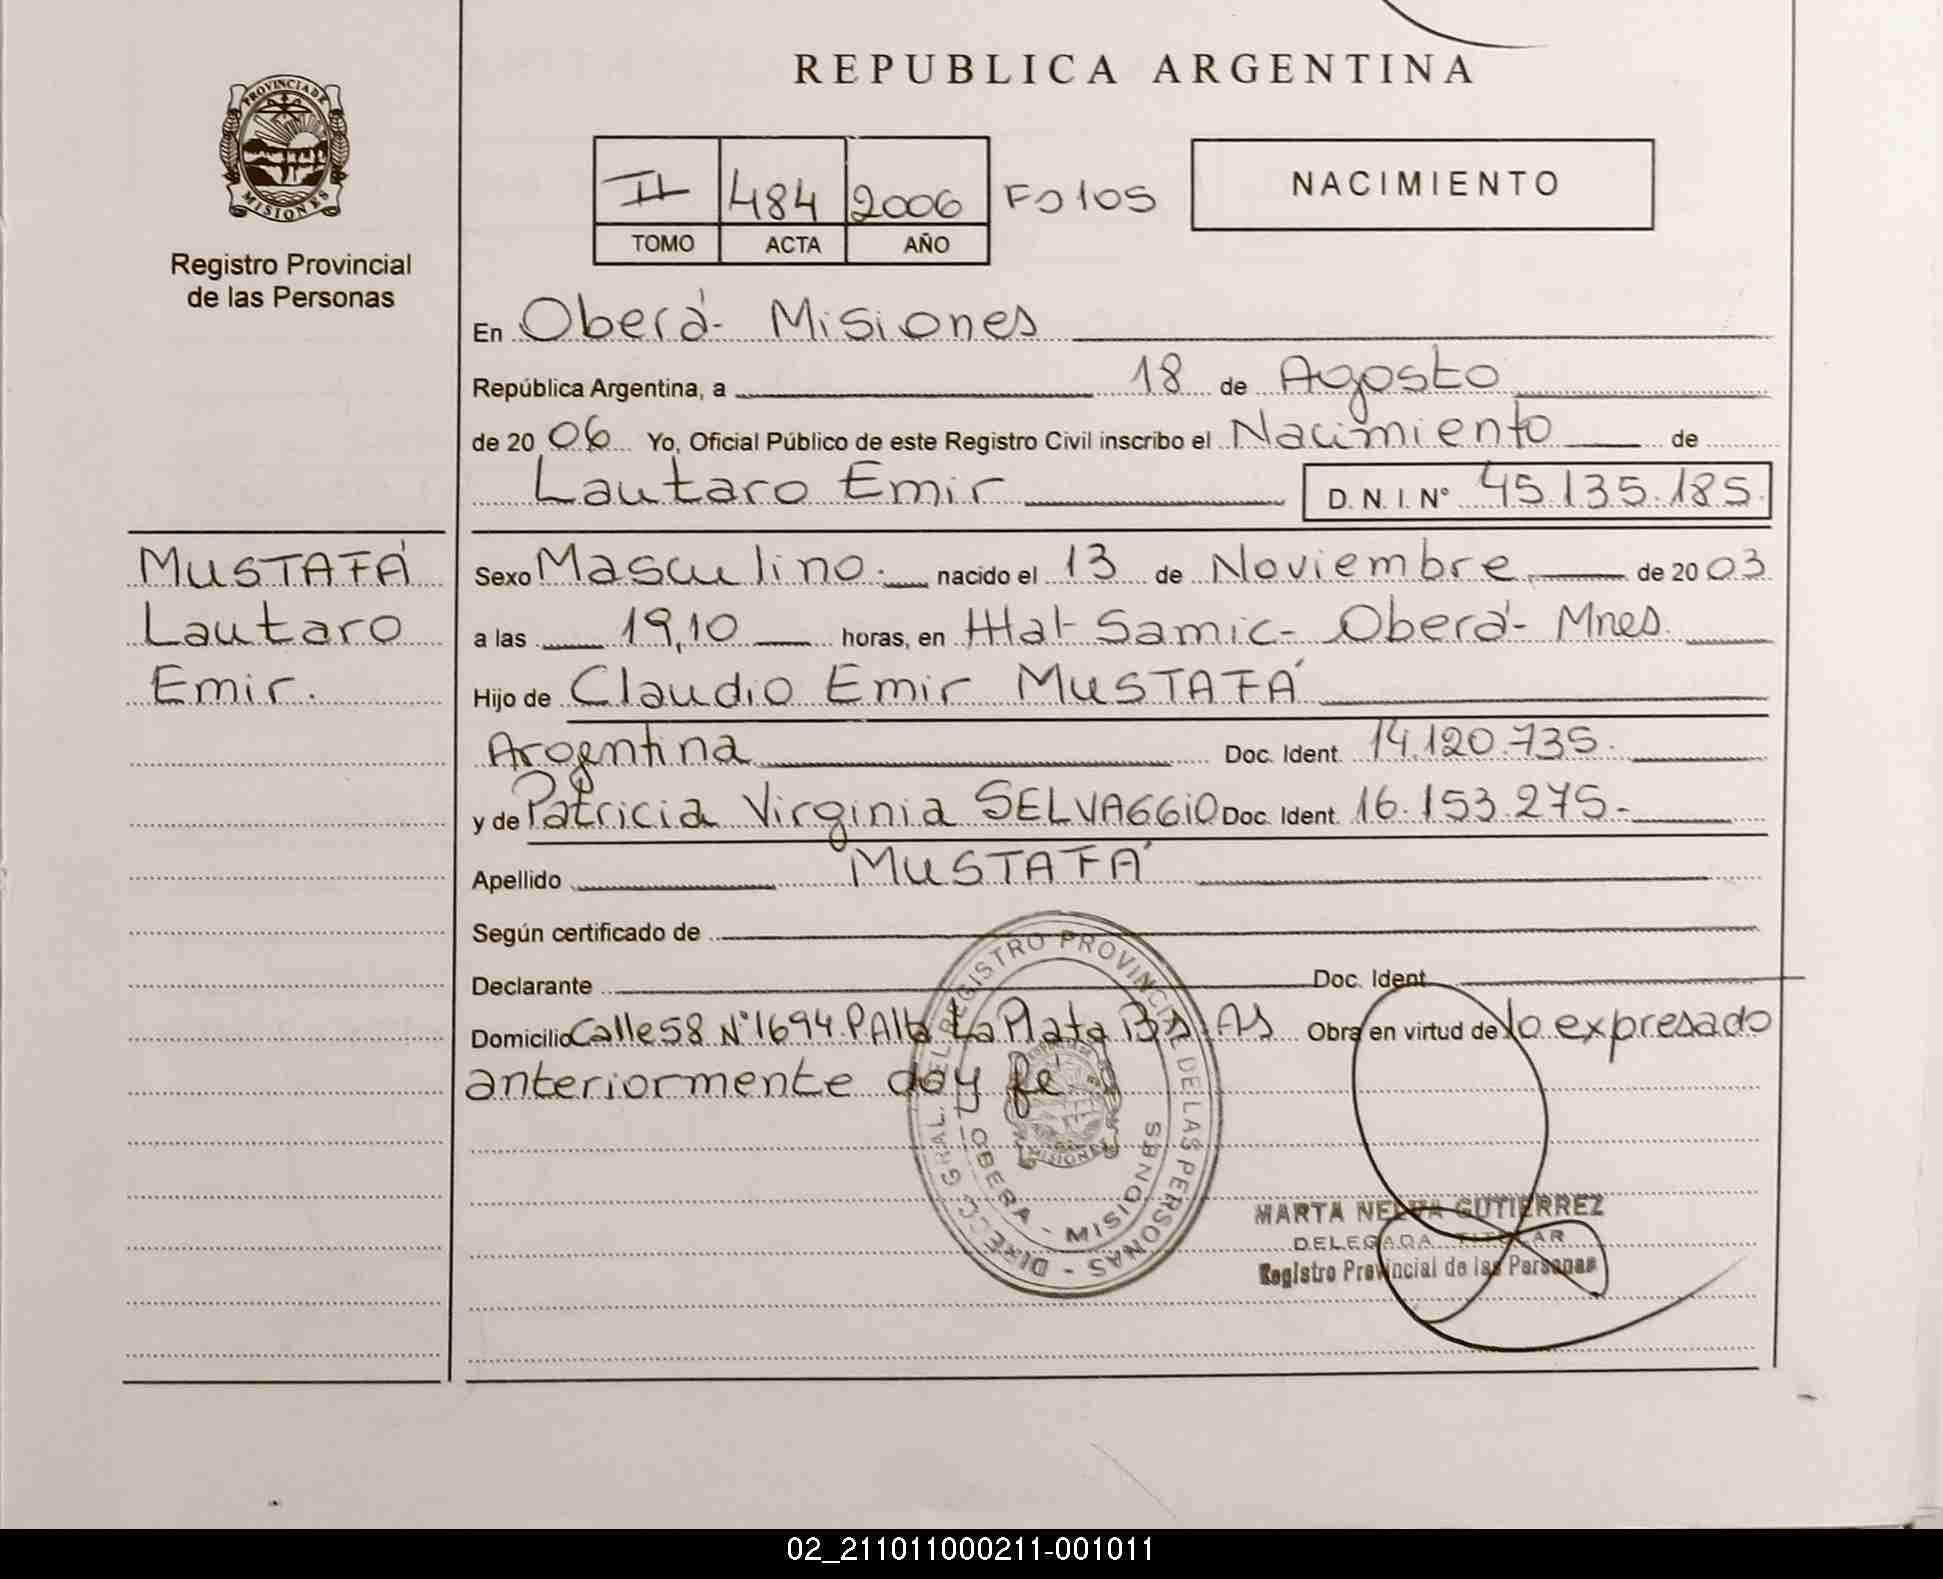 REPUBLICA ARGENTINA
PROVINCIA DE
MISIONES
Registro Provincial
de las Personas
II 484 2006 Fo 105
TOMO ACTA AÑO
NACIMIENTO
En Oberá- Misiones
República Argentina, a 18 de Agosto
de 20 06 Yo, Oficial Público de este Registro Civil inscribo el Nacimiento de
Lautaro Emir D. N. I. N° 45.135.185.
MUSTAFÁ
Lautaro
Emir.
Sexo Masculino. nacido el 13 de Noviembre de 20 03
a las 19,10 horas, en Htal Samic- Oberá- Mnes.
Hijo de Claudio Emir MUSTAFÁ
Argentina Doc. Ident. 14.120.735.
y de Patricia Virginia SELVAGGIO Doc. Ident. 16.153.275.-
Apellido MUSTAFÁ
Según certificado de
Declarante Doc. Ident.
Domicilio Calle 58 N°1694. P.Alta La Plata Bs.As Obra en virtud de lo expresado
anteriormente doy fé
DIRECC. GRAL. DEL REGISTRO PROVINCIAL DE LAS PERSONAS -
OBERA - MISIONES
MISIONES
MARTA NELVA GUTIERREZ
DELEGADA TITULAR
Registro Provincial de las Personas
02_211011000211-001011